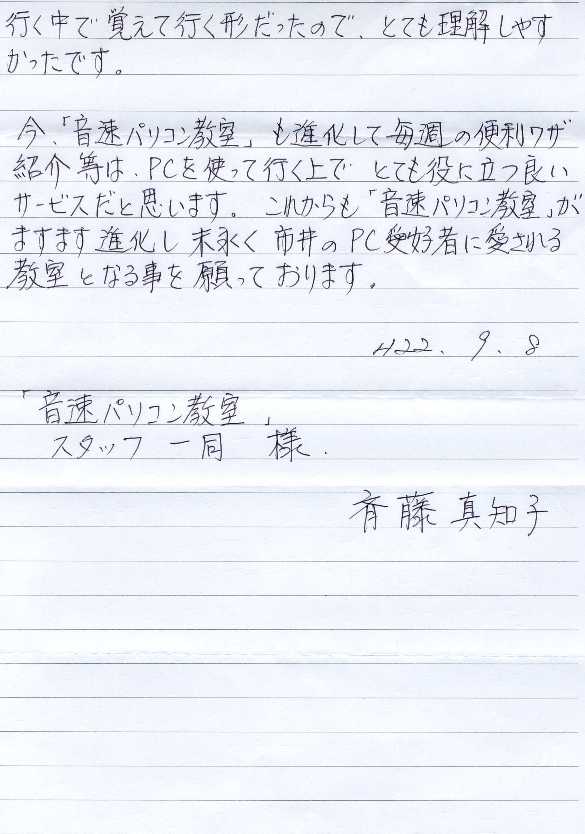 行く中で覚えて行く形だったので、とても理解しやす
かったです。
今、「音速パソコン教室」も進化して毎週の便利ワザ
紹介等は、PCを使って行く上で とても役に立つ良い
サービスだと思います。これからも「音速パソコン教室」が
ますます進化し 末永く 市井のPC愛好者に愛される
教室となる事を願っております。
H22. 9. 8
「音速パソコン教室」
スタッフ一同 様.
斉藤 真知子